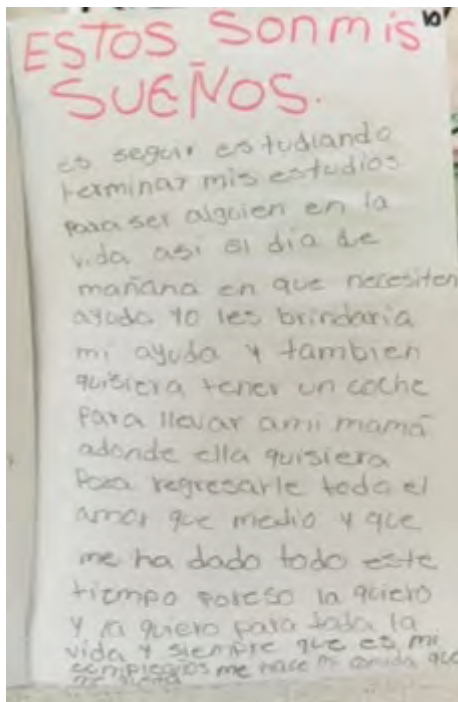 ESTOS SON mis
SUEÑOS.
es seguir estudiando
terminar mis estudios
para ser alguien en la
vida asi el dia de
mañana en que necesiten
ayuda yo les brindaria
mi ayuda y tambien
quisiera tener un coche
para llevar ami mamá
adonde ella quisiera
Para regresarle todo el
amor que medio y que
me ha dado todo este
tiempo poreso la quiero
y la quiero para toda la
vida y siempre que es mi
cumpleaños me hace mi comida que
me